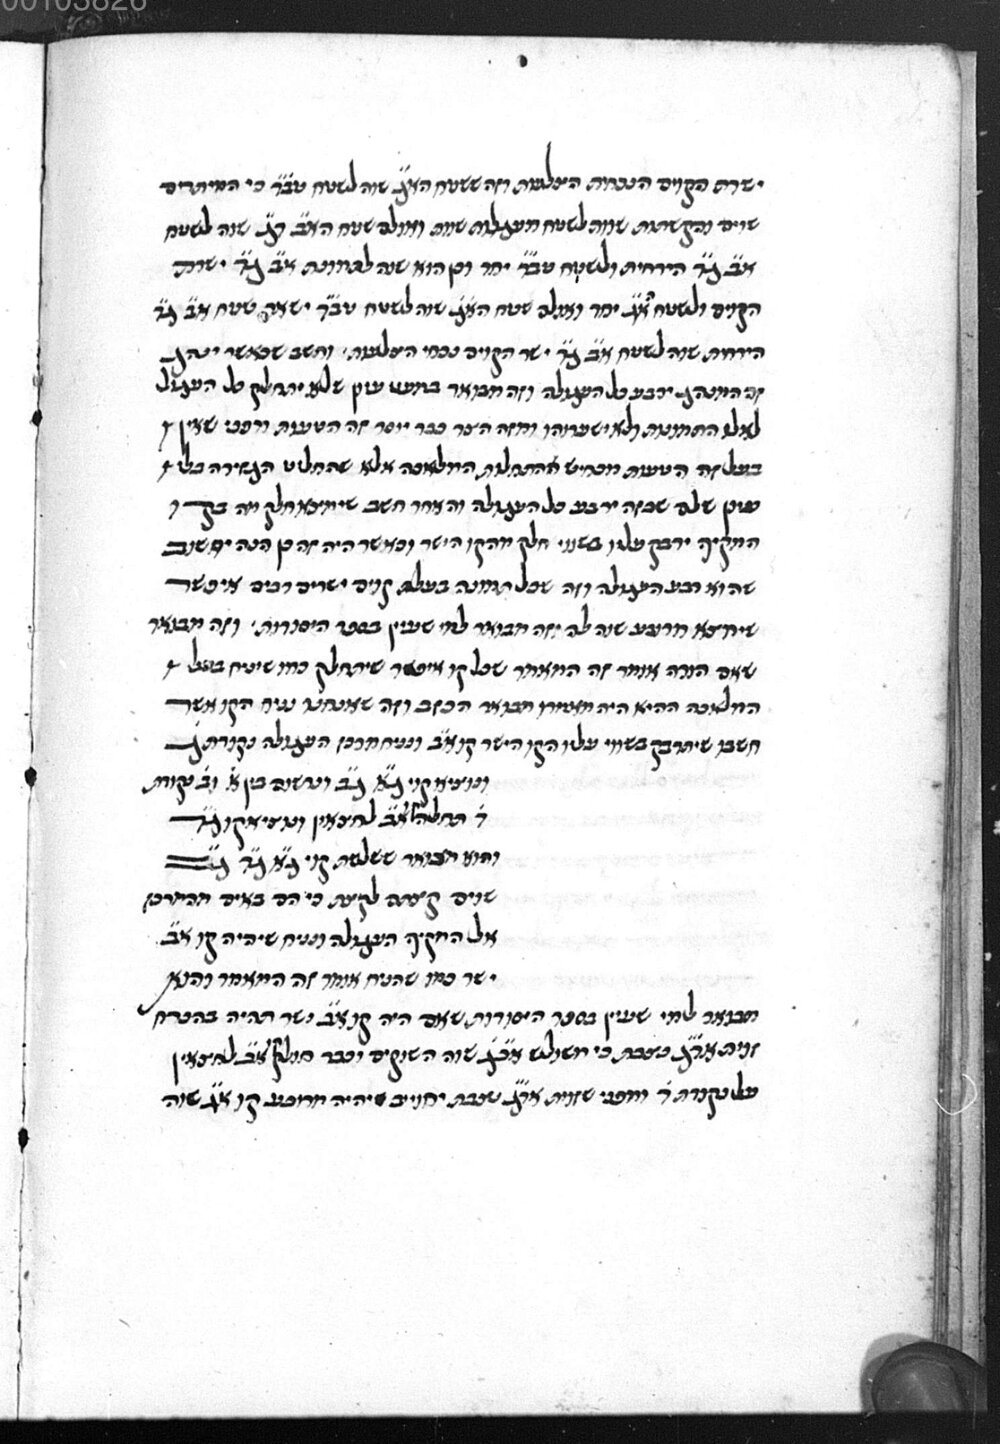 00105826
ישרת הקוים הנכחות הצלעות וזה ששטח האג שוה לשטח טבד כי המיתרים
שוים והקשתות שוות לשטח מעגלות שוות ואולם שטח האב שוה לשטח
אב גד הירחית ולשטח טבד יחד וכן הוא שוה לתמונת אב גד ישרת
הקוים ולשטח אג יחד ואולם שטח האג שוה לשטח טבד ישאר שטח אב גד
הירחית שוה לשטח אב גד ישר הקוים נכחי הצלעות וחשב שכאשר ינהג
זה המנהג ירבע כל העגולה וזה מבואר במעט עיון שלא יתחלק כל העגול
לאלו התמונות ולא ישערוהו ומזה הצד כבר יוסר זה הטעות ומפני שאין
בעל זה הטעות מכחיש התחלות המלאכה אלא שהחליט הגזירה בלי
עיון שלם שבזה ירבע כל העגולה והאחר חשב שיימצא חלק מה בקו
המקיף ידבק עליו בשווי חלק מהקו הישר וכאשר היה זה כן הנה יחשוב
שהוא רבע העגולה וזה שכל תמונה בעלת קוים ישרים רבים איפשר
שימצא מרובע שוה לה וזה מבואר למי שעיין בספר היסודות וזה מבואר
שאם הודה אומר זה המאמר שכל קו איפשר שיתחלק כמו שיניח בעל
המלאכה ההיא היה מאמרו מבואר הכזב וזה שאנחנו נניח הקו אשר
חשבו שיתדבק בשווי עליו הקו הישר קו אב ונניח מרכז העגולה נקודת ג
ונוציא קוי גא גב ונרשום בין א וב נקודת
ד תחלק אב לחצאין ונוציא קו גד
והוא מבואר ששלשת קוי גא גד גב
שוים קצתם לקצת כי הם באים מהמרכז
אל המקיף העגולה ונניח שיהיה קו אב
ישר כמו שהניח אומר זה המאמר והנה
מבואר למי שעיין בספר היסודות שאם היה קו אב ישר תהיה בהכרח
זוית אדג נצבת כי משולש אבג שוה השוקים וכבר חולק אב לחצאין
על נקודת ד ומפני שזוית אדג נצבת יחוייב שיהיה מרובע קו אג שוה